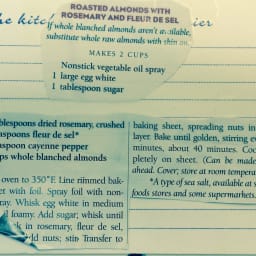 the kitch
ier
ROASTED ALMONDS WITH
ROSEMARY AND FLEUR DE SEL
If whole blanched almonds aren't available,
substitute whole raw almonds with skin on.
MAKES 2 CUPS
Nonstick vegetable oil spray
1 large egg white
1 tablespoon sugar
blespoons dried rosemary, crushed
aspoons fleur de sel*
easpoon cayenne pepper
ps whole blanched almonds
oven to 350°F. Line rimmed bak-
et with foil. Spray foil with non-
ray. Whisk egg white in medium
l foamy. Add sugar; whisk until
k in rosemary, fleur de sel,
dd nuts; stir. Transfer to
baking sheet, spreading nuts in
layer. Bake until golden, stirring ev
minutes, about 40 minutes. Coo
pletely on sheet. (Can be made
ahead. Cover; store at room tempera
*A type of sea salt, available at s
foods stores and some supermarkets.